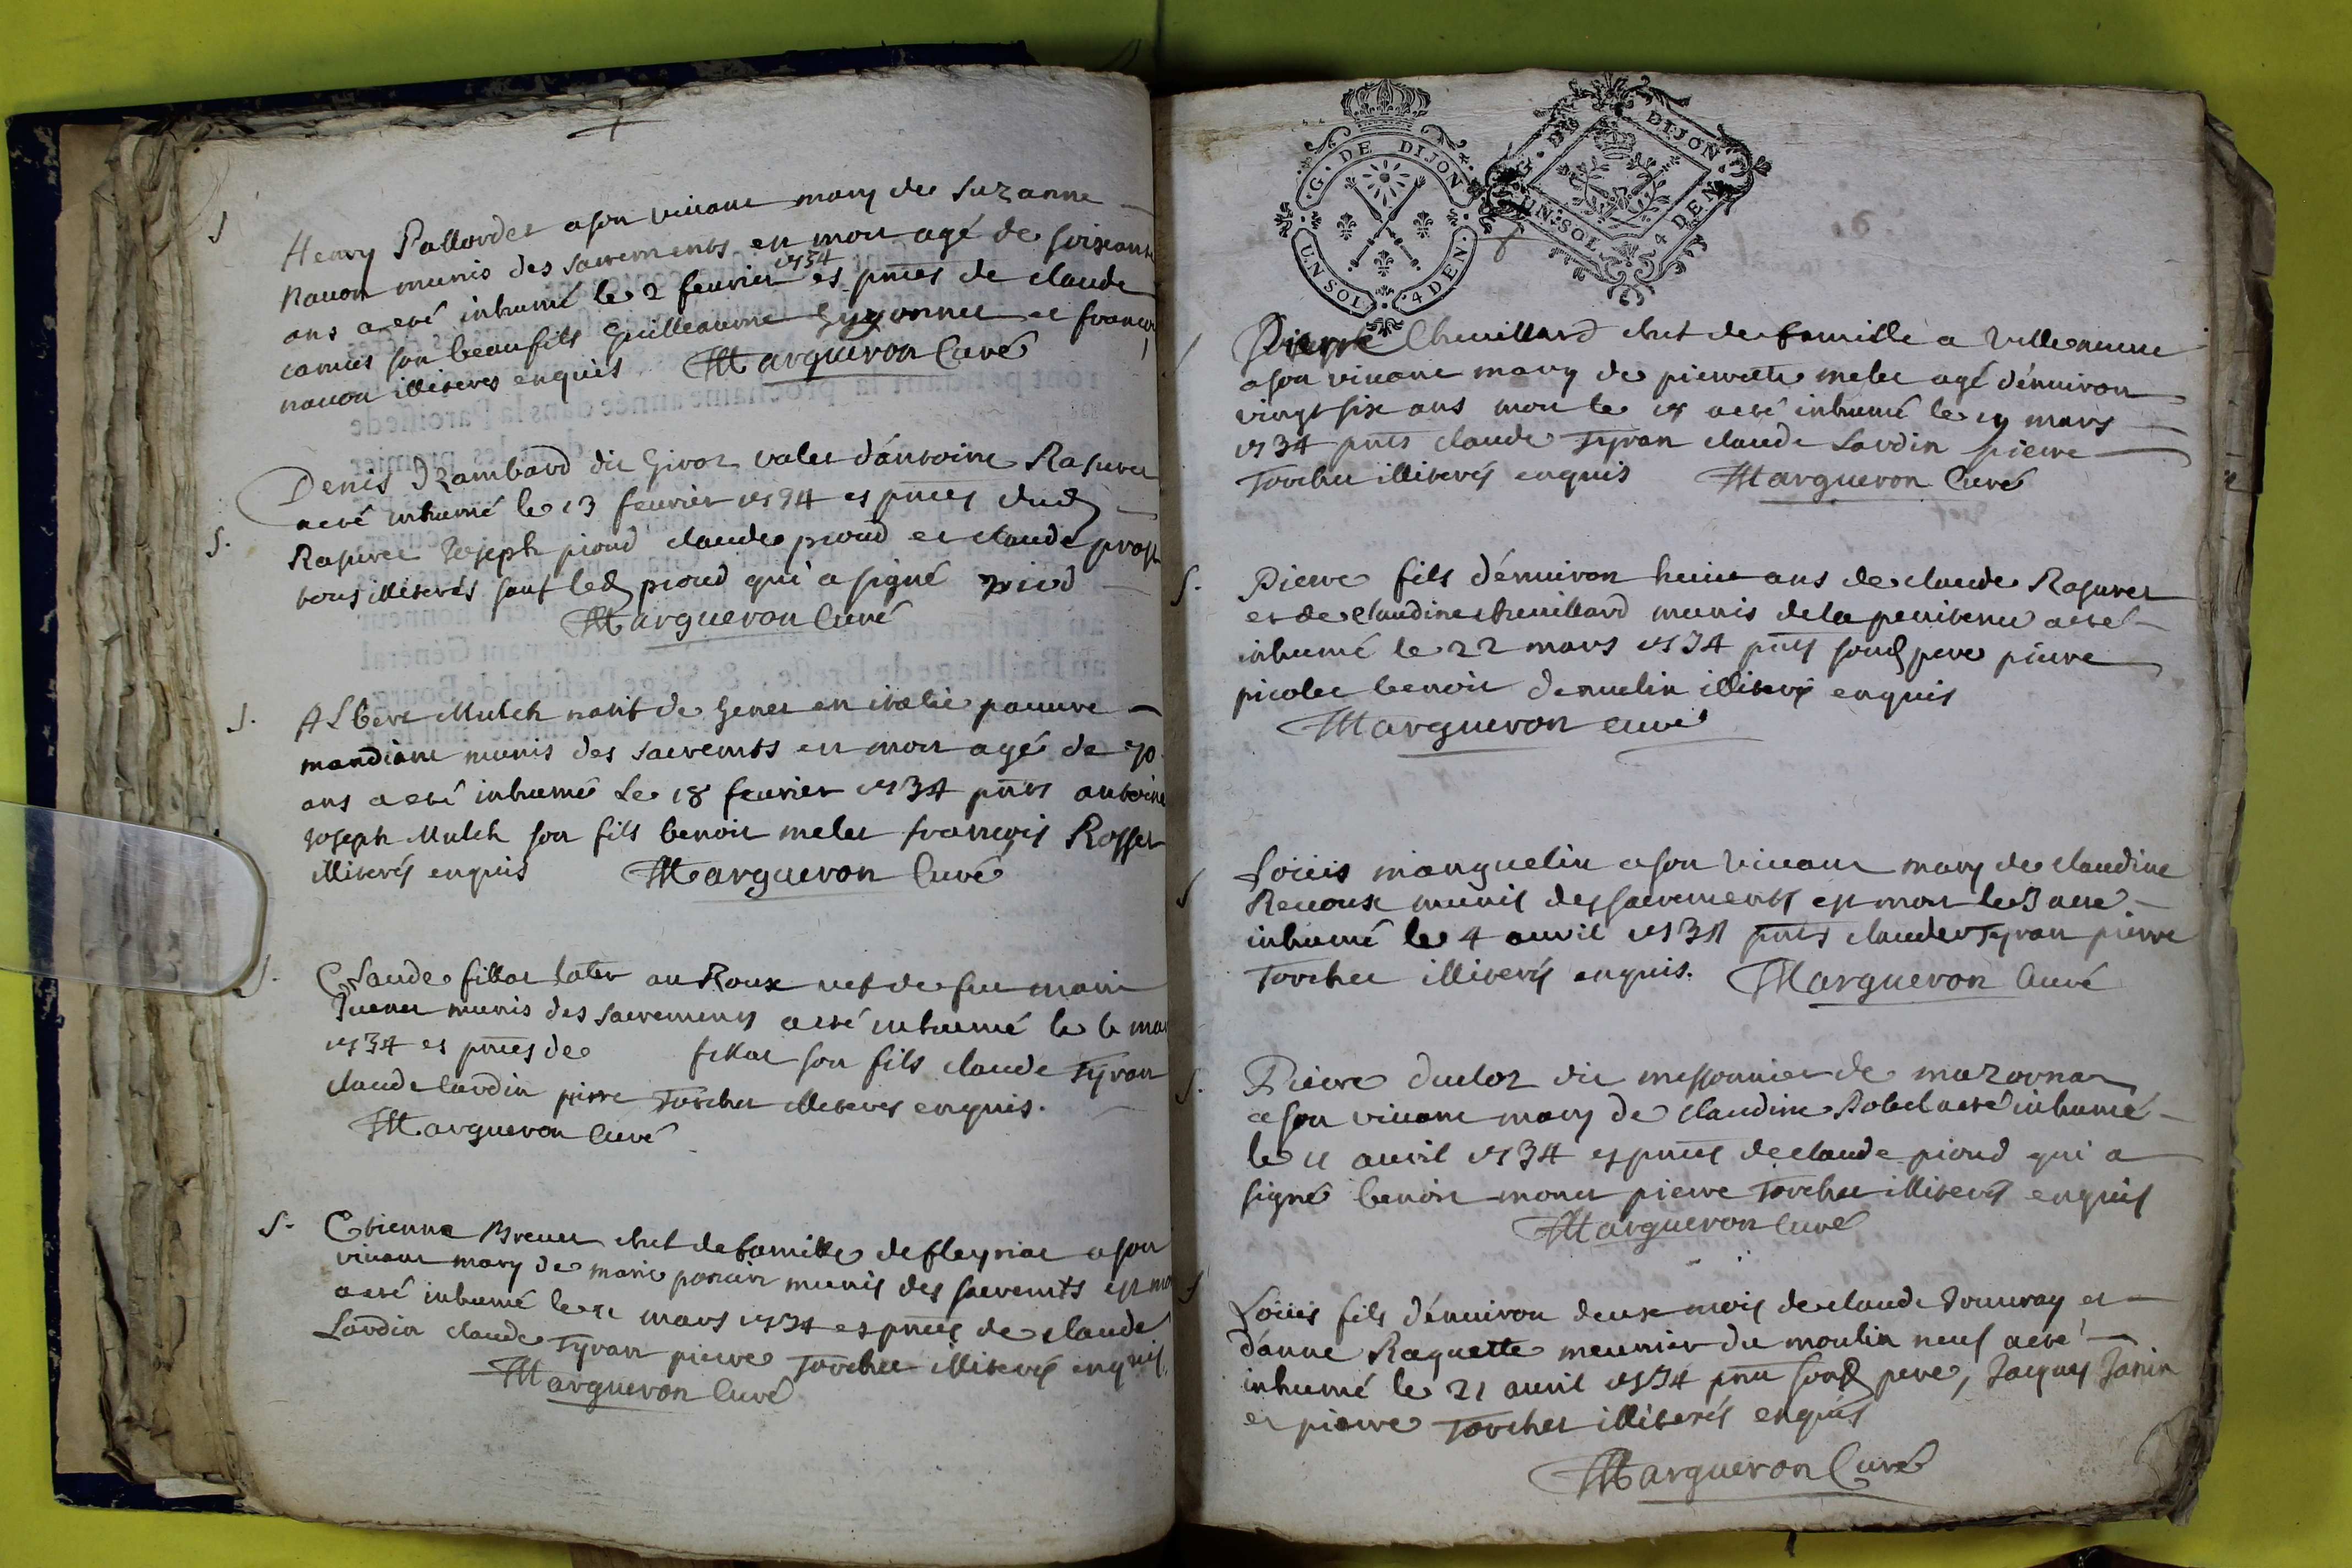 S
Henry Pallordet a son vivant mary de Suzanne
Navon munis des sacrements en mort agé de soixante
ans a eté inhumé le 2 fevrier 1734 es pñces de claude
son beaufils Guilleaume Guyonnet et francois
navon illiterés enquis Margueron Curé
Denis Rambard dit Girot valet d'antoine Rasurel
a eté inhumé le 13 fevrier 1734 es pñces dud
S.
Rasurel Joseph pioud claude pioud et claude
tous illiterés sauf led pioud qui a signé piod
Margueron Curé
S.
Albert Mulch natif de Genes en italie pauvre
mandiant munis des sacremts en mort agé de 70
ans a eté inhumé Le 18 fevrier 1734 pñts antoine
Joseph Mulch son fils benoit melet francois Rosset
illiterés enquis Margueron Curé
S.
Claude fillat au Roux de feu marie
munis des sacrements a eté inhumé le 6 mars
1734 es pñces de fillat son fils claude Tyran
claude Lardin pierre Torchet illiteres enquis.
Margueron Curé
S.
Etienne Brevet chef de famille de fleyriat a son
vivant mary de marie poncin munis des sacremts est mort
a eté inhumé le 11 mars 1734 es pñces de claude
Lardin claude Tyran pierre Torchet illiterés enquis.
Margueron Curé
G. DE DIJON
UN SOL 4 DEN.
G. DE DIJON
UN SOL 4 DEN
Pierre Chevillard chef de famille a Villeneuve
a son vivant mary de pierrette melet agé d'environ
vingt six ans mort le 18 a eté inhumé le 19 mars
1734 pñts claude Tyran claude Lardin pierre
Torchet illiterés enquis Margueron Curé
S.
Pierre fils d'environ huit ans de claude Rasurel
et de claudine chevillard munis de la penitence a eté
inhumé le 22 mars 1734 pñts sond pere pierre
picolet benoit denuelin illiterés enquis
Margueron curé
S
Loüis manguelin a son vivant mary de claudine
Revoux munis des sacrements est mort le 3 a eté
inhumé le 4 avril 1734 pñts claude Tyran pierre
Torchet illiterés enquis. Margueron Curé
S.
Pierre duclot dit messonnier de mazornat
a son vivant mary de claudine Robel a eté inhumé
le 11 avril 1734 es pñces de claude pioud qui a
signé benoit monet pierre Torchet illiterés enquis
Margueron Curé
S
Loüis fils d'environ deux mois de claude et
d'anne Raquette meunier du moulin neuf a eté
inhumé le 21 avril 1734 pñts sond pere, Jacques Janin
et pierre Torchet illiterés enquis
Margueron Curé